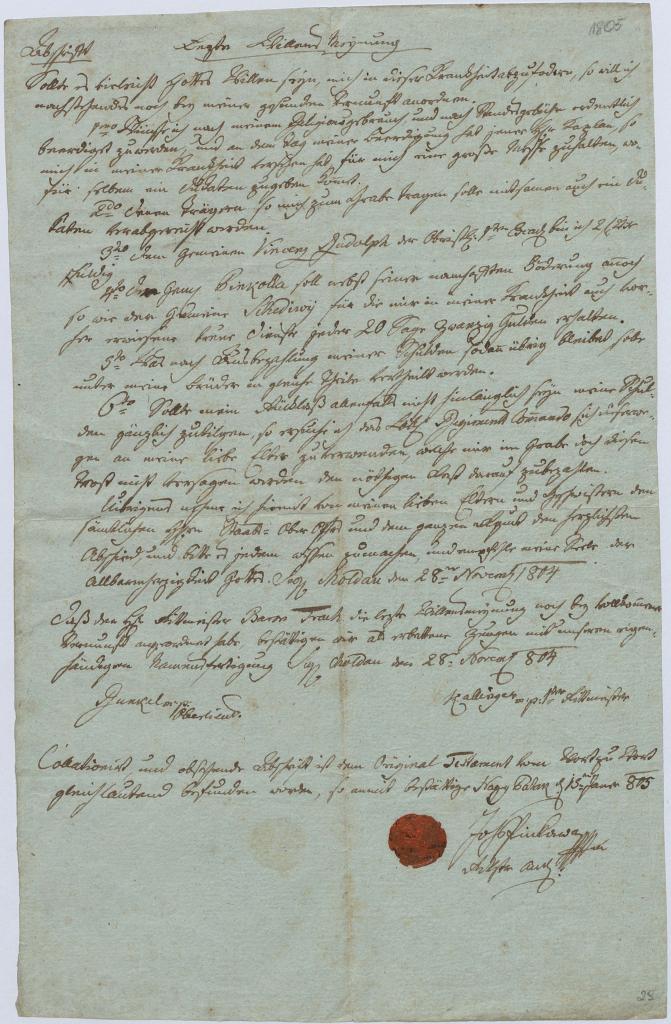 1805
Abschrift Lezte Willens Meynung
Sollte es vieleicht Gottes Willen seyn, mich in dieser Krankheit abzufodern, so will ich
nachstehendes noch bey meiner gesunden Vernunft anordnen.
1mo Wünsche ich nach meinem Religionsgebrauch, und nach Standesgebühr ordentlich
beerdiget zu werden, und an dem Tag meiner Beerdigung hat jener H: Kaplan, so
mich in meiner Krankheit versehen hat für mich eine große Messe zu halten, wo
für selbem ein Dukaten zugeben kömt.
2do Denen Trägern so mich zum Grabe tragen solle mitsamen auch ein Du-
katen verabgereicht werden.
3tio dem Gemeinen Vincenz Rudolph der Obrist bin ich 2
schuldig
4to Der Gems Pinkolla soll nebst seiner Löderung annoch
so wie der Gemeine Schediwy für die mir in meiner Krankheit auch vor-
her erwiesene treue Dienste jeder 20 Sage Zwanzig Gulden erhalten.
5to Was nach Ausbezahlung meiner Schulden sodan übrig bleibet, solle
unter meine Brüder in gleiche Theile vertheilt werden.
6to Sollte mein Rücklaß allenfalls nicht hinlänglich seyn meine Schul-
den gänzlich zutilgen, so ersuche ich das Löbl: Regiments Comando sich
gen an meine liebe Elter zu verwenden, welche mir im Grabe doch diesen
Trost nicht versagen werden den nöthigen Rest darauf zubezahlen.
Übrigens nehme ich hiemit von meinen lieben Eltern und Geschwistern den
sämtlichen Herrn Staabs- Ober Offrs und dem ganzen Regmt den herzlichsten
Abschied, und bitte es jedem wissen zumachen, und empfehle meine Seele der
Allbarmherzigkeit Gottes. Sig Moldau den 28ten Novemb 1804
Daß der H: Rittmeister Baron Trach die lezte Willensmeynung noch bey vollkomener
Vernunft angeordnet habe, bestättigen wir als erbettene Zeugen mit unseren eigen-
händigen Namensfertigung Sig Moldau den 28ten Novemb 804
m.p. Oberlieut. Hallinger m.p. 1ter Rittmeister
Collationirt, und obstehende Abschrift ist dem Original Testament vom Wort zu Wort
gleichlautend befunden worden, so anmit bestättige Nagy den 13ten Janer 805
Joh
25